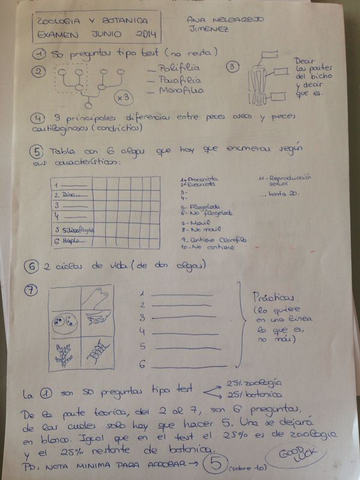 ZOOLOGÍA Y BOTANICA
EXAMEN JUNIO 2014
ANA MELGAREJO
JIMENEZ
① 50 preguntas tipo test (no resta)
②
— Polifilia
— Parafilia
— Monofilia
x3
③
Decir
las partes
del bicho
y decir
que es.
④ 3 principales diferencias entre peces oseos y peces
cartilaginosos (condrictios)
⑤ Tabla con 6 algas que hay que enumerar según
sus características:
1
2
3
4
5
6
1- Procariota
2- Eucariota
3-
4-
5- Flagelada
6- No flagelada
7- Movil
8- No movil
9- Contiene Clorofila
10- No contiene
11- Reproducción
sexual
... hasta 20.
⑥ 2 ciclos de vida (de dos algas)
⑦
1
2
3
4
5
6
Prácticas
(lo quiere
en una línea
lo que es,
no más)
La ① son 50 preguntas tipo test
25% zoología
25% botanica
De la parte teorica, del 2 al 7, son 6 preguntas,
de las cuales solo hay que hacer 5. Una se dejará
en blanco. Igual que en el test el 25% es de zoología
y el 25% restante de botanica.
PD: NOTA MINIMA PARA APROBAR → ⑤ (sobre 10)
GOOD LUCK